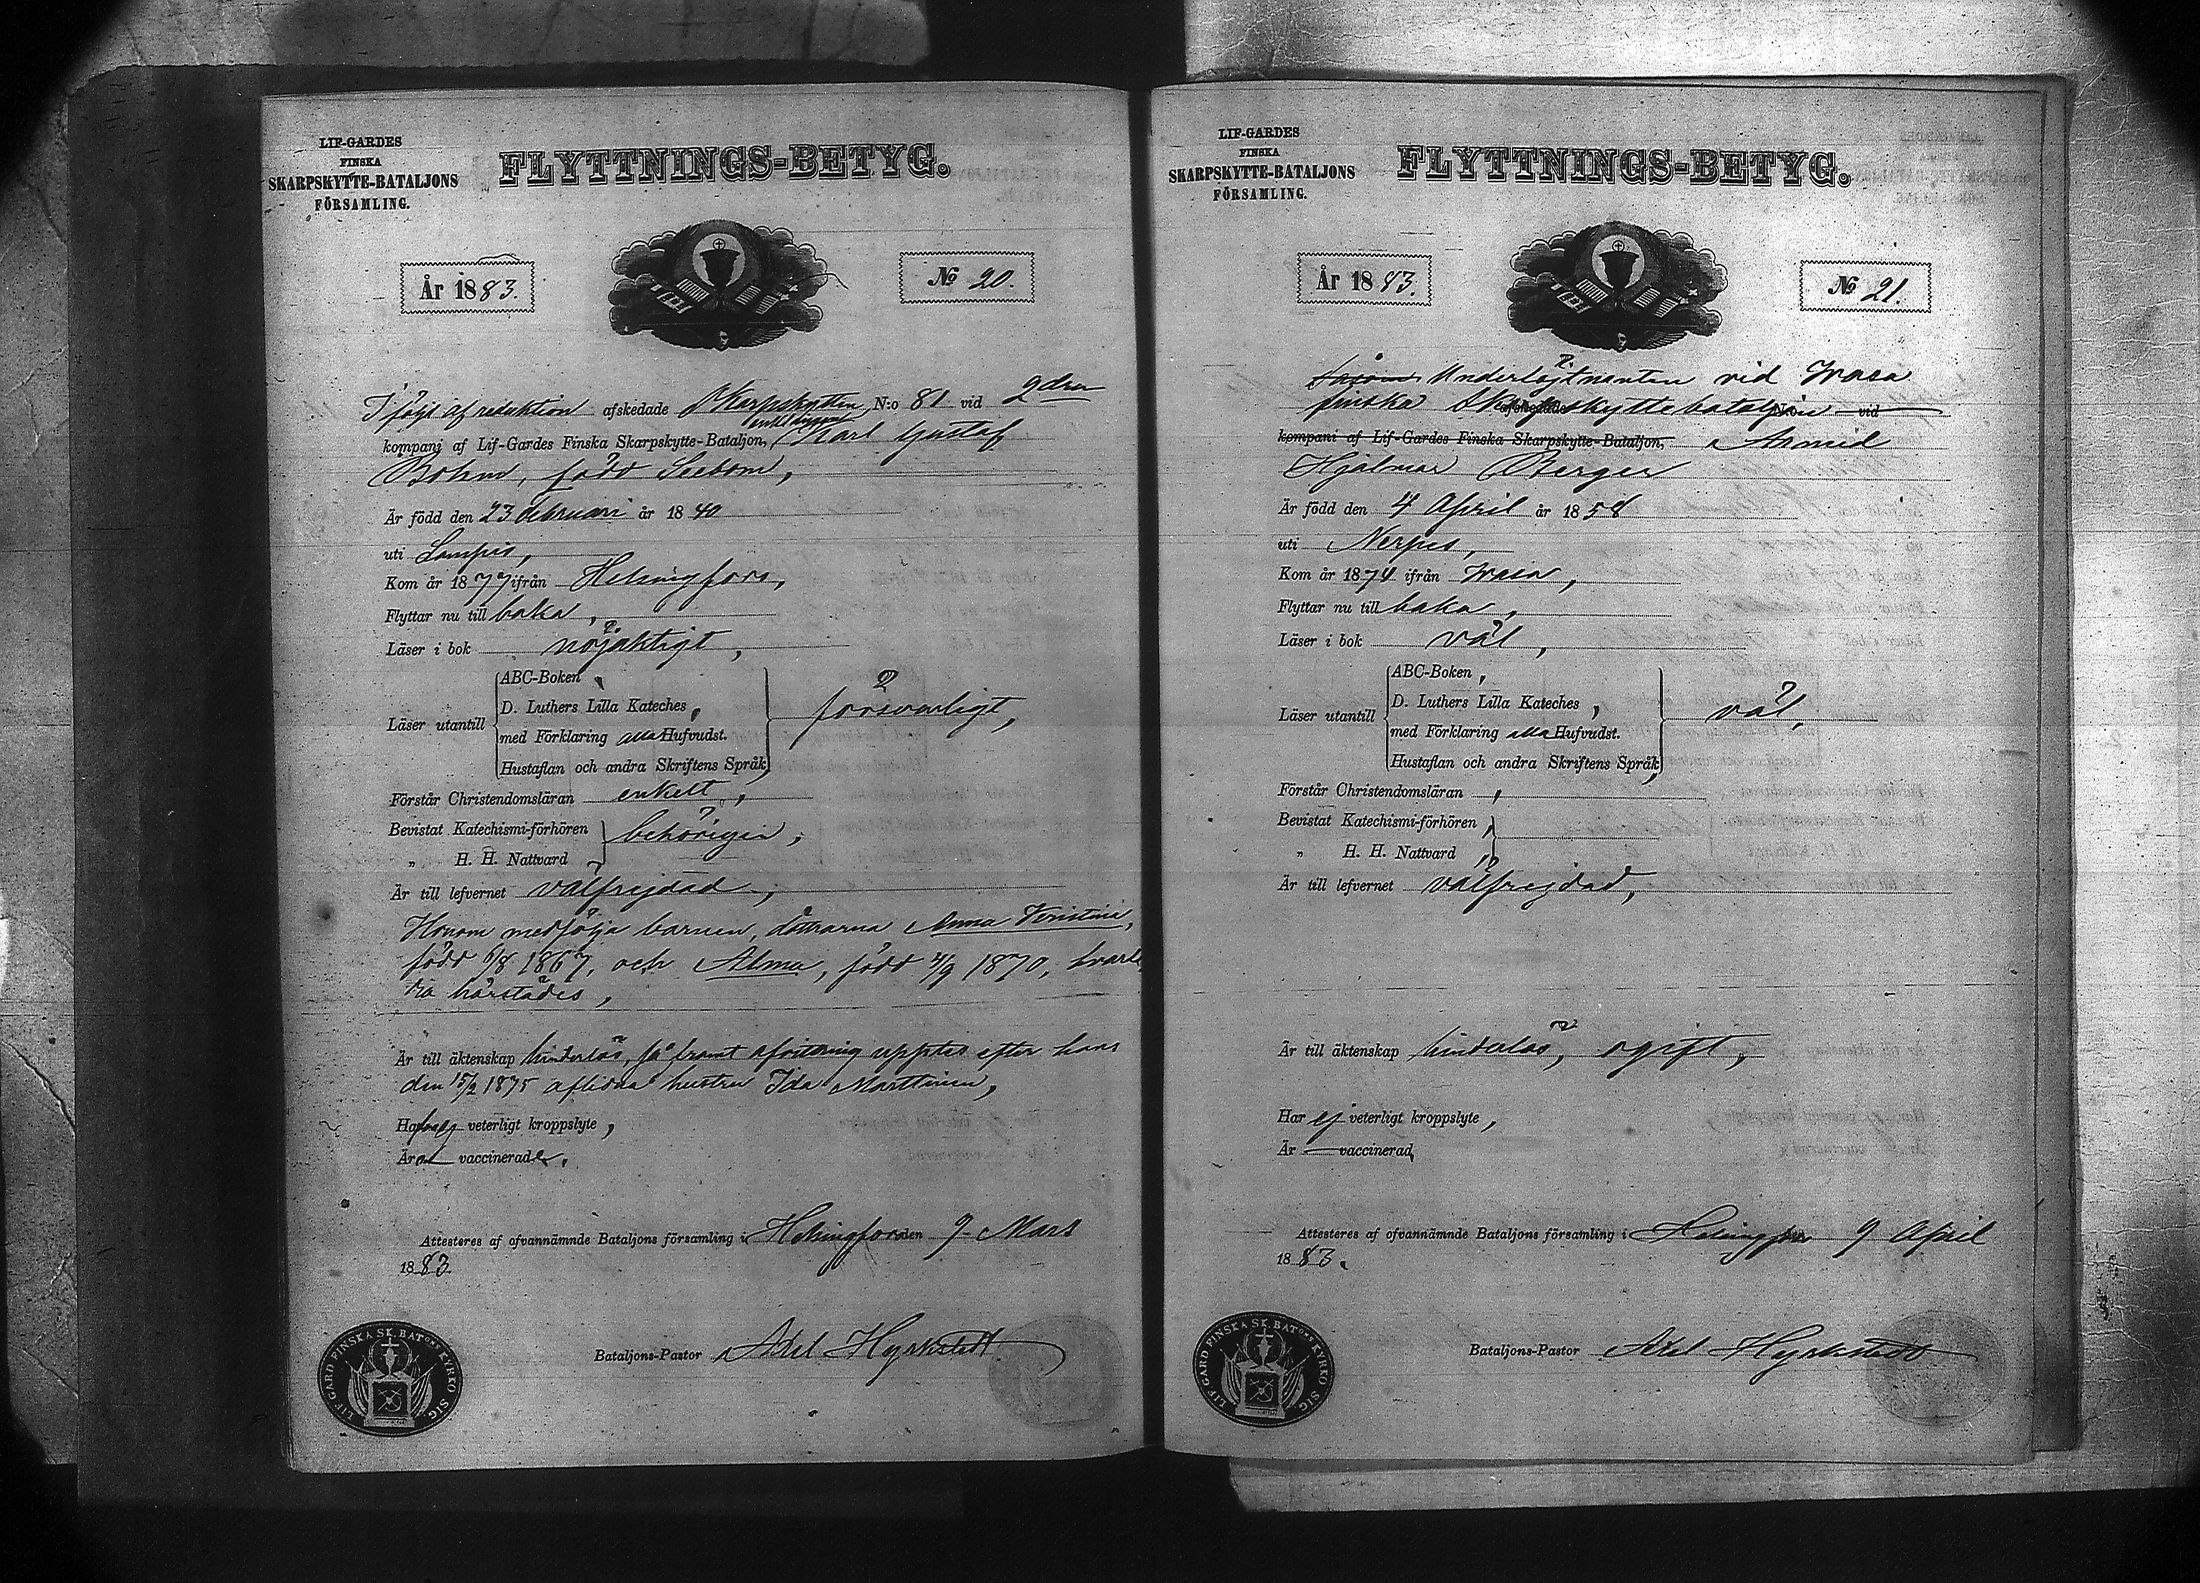 LIF-GARDES
FINSKA
SKARPSKYTTE-BATALJONS
FÖRSAMLING.
FLYTTNINGS-BETYG.
År 1883.
No 20.
I följd af reduktion afskedade Skarpskytten N:o 81 vid 2dra
enklingen
kompani af Lif-Gardes Finska Skarpskytte-Bataljon, Karl Gustaf
Bohm, född Seebom,
Är född den 23 Februari år 1840
uti Lampis,
Kom år 1877 ifrån Helsingfors,
Flyttar nu till baka,
Läser i bok nöjaktigt,
ABC-Boken,
D. Luthers Lilla Kateches,
Läser utantill med Förklaring alla Hufvudst. försvarligt,
Hustaflan och andra Skriftens Språk
Förstår Christendomsläran enkelt,
Bevistat Katechismi-förhören behörigen,
„ H. H. Nattvard
Är till lefvernet välfrejdad,
Honom medfölja barnen, döttrarna Anna Kristina,
född 6/8 1867, och Alma, född 4/9 1870,
härstädes,
Är till äktenskap hinderlös, så framt afvittring upptes efter hans
den 15/2 1875 aflidna hustru Ida Marttinen,
Har ej veterligt kroppslyte,
Är vaccinerade.
Attesteras af ofvannämnde Bataljons församling i Helsingfors den 9 Mars
1883
Bataljons-Pastor Axel Hyrkstedt
LIF GARD FINSKA SK. BATONS KYRKO SIG.
LIF-GARDES
FINSKA
SKARPSKYTTE-BATALJONS
FÖRSAMLING.
FLYTTNINGS-BETYG.
År 1883.
No 21.
Såsom Underlöjtnanten vid Wasa
finska Skarpskyttebataljon vid
kompani af Lif-Gardes Finska Skarpskytte-Bataljon, Armid
Hjalmar Berger
Är född den 4 April år 1858
uti Nerpes,
Kom år 1874 ifrån Wasa,
Flyttar nu till baka,
Läser i bok väl,
ABC-Boken,
D. Luthers Lilla Kateches,
Läser utantill med Förklaring alla Hufvudst. väl,
Hustaflan och andra Skriftens Språk
Förstår Christendomsläran,
Bevistat Katechismi-förhören,
„ H. H. Nattvard,
Är till lefvernet välfrejdad,
Är till äktenskap hinderlös, ogift,
Har ej veterligt kroppslyte,
Är vaccinerad,
Attesteras af ofvannämnde Bataljons församling i Helsingfors 9 April
1883.
Bataljons-Pastor Axel Hyrkstedt
LIF GARD FINSKA SK. BATONS KYRKO SIG.